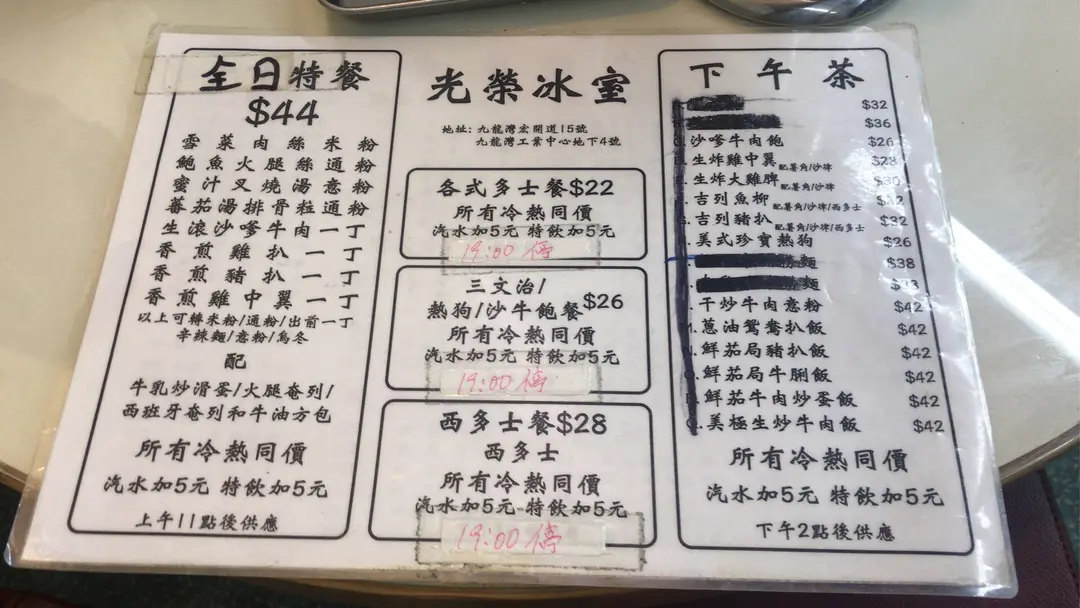 全日特餐
$44
雪菜肉絲米粉
鮑魚火腿絲通粉
蜜汁叉燒湯意粉
蕃茄湯排骨粒通粉
生滾沙嗲牛肉一丁
香煎雞扒一丁
香煎豬扒一丁
香煎雞中翼一丁
以上可轉米粉/通粉/出前一丁
辛辣麵/意粉/烏冬
配
牛乳炒滑蛋/火腿奄列/
西班牙奄列和牛油方包
所有冷熱同價
汽水加5元 特飲加5元
上午11點後供應
光榮冰室
地址: 九龍灣宏開道15號
九龍灣工業中心地下4號
各式多士餐$22
所有冷熱同價
汽水加5元 特飲加5元
19:00 停
三文治/
熱狗/沙牛飽餐$26
所有冷熱同價
汽水加5元 特飲加5元
19:00 停
西多士餐$28
西多士
所有冷熱同價
汽水加5元 特飲加5元
19:00 停
下午茶
$32
$36
沙嗲牛肉飽 $26
生炸雞中翼 配薯角/沙律 $28
生炸大雞脾 配薯角/沙律 $30
吉列魚柳 配薯角/沙律/西多士
吉列豬扒 配薯角/沙律/西多士 $32
美式珍寶熱狗 $26
麵 $38
麵
干炒牛肉意粉 $42
蔥油鴛鴦扒飯 $42
鮮茄局豬扒飯 $42
鮮茄局牛脷飯 $42
鮮茄牛肉炒蛋飯 $42
美極生炒牛肉飯 $42
所有冷熱同價
汽水加5元 特飲加5元
下午2點後供應